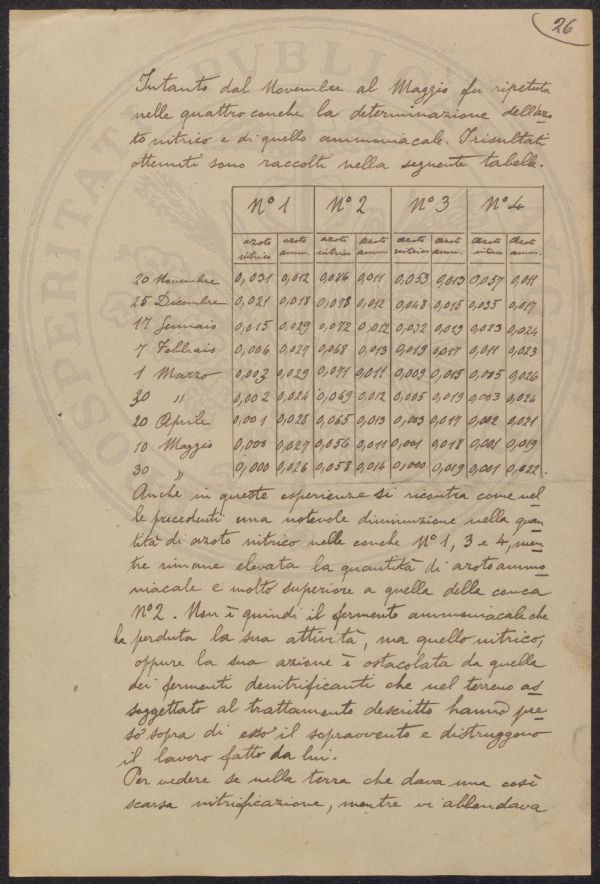 26
Intanto dal Novembre al Maggio fu ripetuta
nelle quattro conche la determinazione dell'azo
to nitrico e di quello ammoniacale. I risultati
ottenuti sono raccolti nella seguente tabella.
N° 1 N° 2 N° 3 N° 4
azoto nitrico azoto amm. azoto nitrico azoto amm. azoto nitrico azoto amm. azoto nitrico azoto amm.
20 Novembre 0,031 0,012 0,086 0,011 0,053 0,013 0,057 0,011
25 Dicembre 0,021 0,018 0,078 0,012 0,048 0,015 0,035 0,017
17 Gennaio 0,015 0,029 0,072 0,012 0,032 0,019 0,023 0,024
7 Febbraio 0,006 0,027 0,068 0,013 0,019 0,017 0,011 0,023
1 Marzo 0,003 0,029 0,071 0,011 0,009 0,015 0,005 0,026
30 " 0,002 0,024 0,069 0,012 0,005 0,019 0,003 0,024
20 Aprile 0,001 0,028 0,065 0,013 0,003 0,017 0,002 0,021
10 Maggio 0,000 0,027 0,056 0,011 0,001 0,018 0,001 0,019
30 " 0,000 0,026 0,058 0,014 0,000 0,019 0,001 0,022.
Anche in queste esperienze si riscontra come nel
le precedenti una notevole diminuzione nella quan
tità di azoto nitrico nelle conche N° 1, 3 e 4, men
tre rimane elevata la quantità di azoto ammo
niacale e molto superiore a quella della conca
N° 2. Non è quindi il fermento ammoniacale che
ha perduta la sua attività, ma quello nitrico,
oppure la sua azione è ostacolata da quella
dei fermenti denitrificanti che nel terreno as
soggettato al trattamento descritto hanno pre
so sopra di esso il sopravvento e distruggono
il lavoro fatto da lui.
Per vedere se nella terra che dava una così
scarsa nitrificazione, mentre vi abbondava